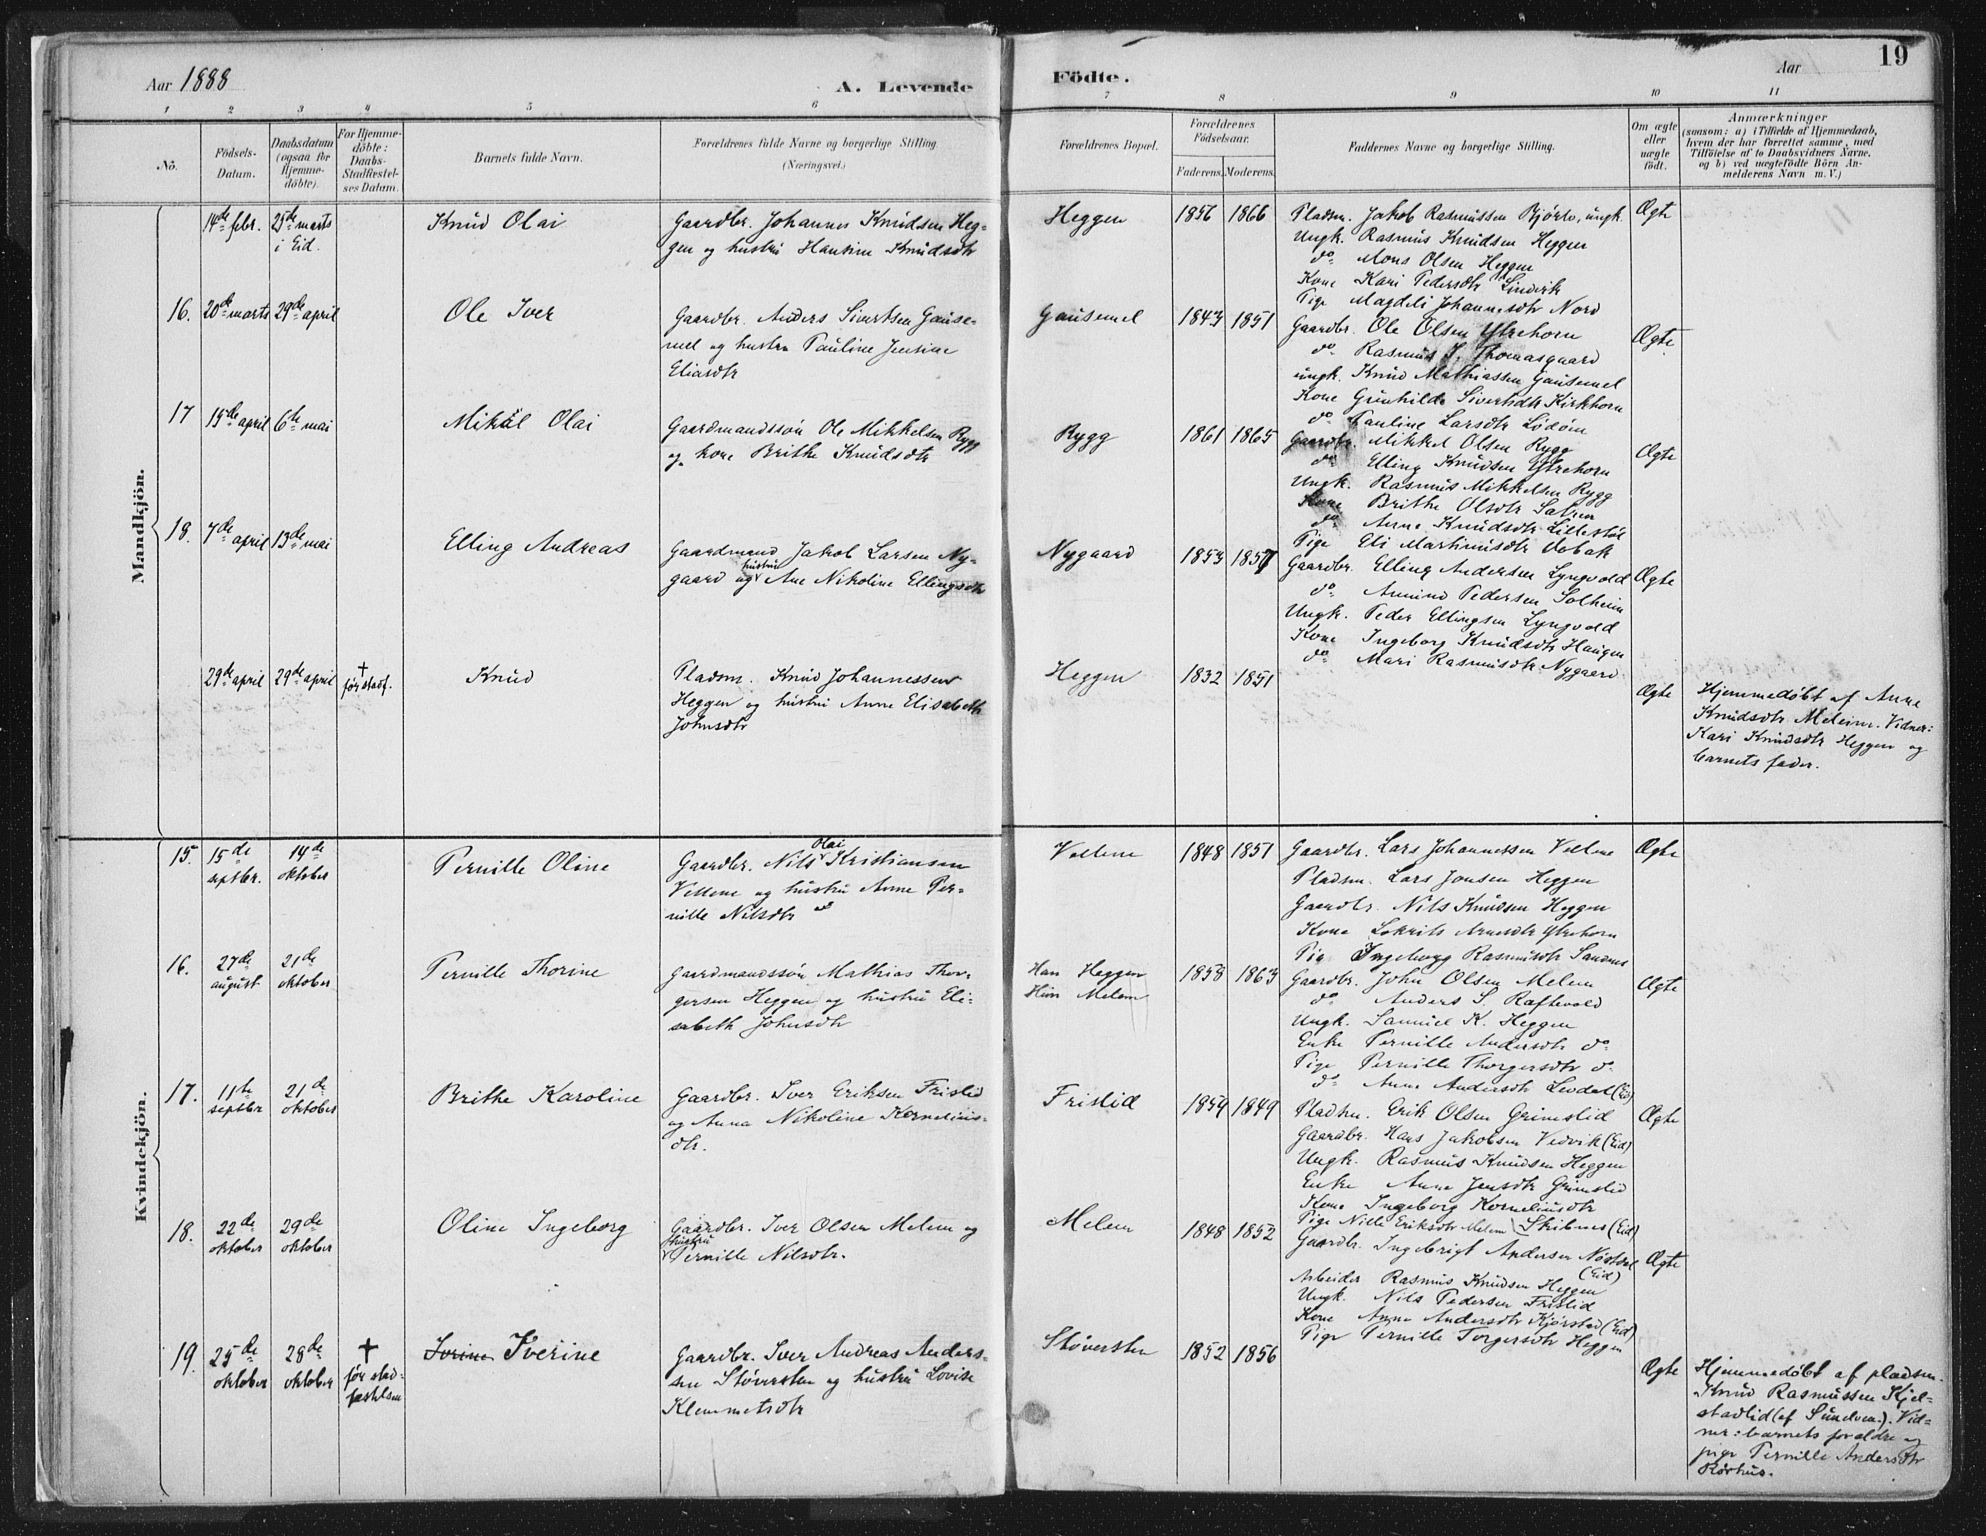 Aar 1888
A. Levende
Födte.
Aar
19
1 2 3 4 5 6 7 8 9 10 11
No.
Födsels-Datum.
Daabsdatum (ogsaa for Hjemmedöbte).
For Hjemmedöbte: Daabs-Stadfæstelses Datum.
Barnets fulde Navn.
Forældrenes fulde Navne og borgerlige Stilling.
(Næringsvei.)
Forældrenes Bopæl.
Forældrenes Födselsaar.
Faderens. Moderens.
Faddernes Navne og borgerlige Stilling.
Om ægte eller uægte födt.
Anmærkninger
(saasom: a) i Tilfælde af Hjemmedaab,
hvem der har forrettet samme, med
Tilföielse af to Daabsvidners Navne,
og b) ved uægtefödte Börn An-
melderens Navn m. V.)
Mandkjön.
14de febr.
25de marts
i Eid.
Knud Olai
Gaardbr. Johannes Knudsen Heg-
gen og hustru Hansine Knudsdtr
Heggen
1856 1866
Pladsm. Jakob Rasmussen Bjørlo, ungk.
Ungk. Rasmus Knudsen Heggen
do Mons Olsen Heggen
Kone Kari Pedersdtr Lindvik
Pige Magdeli Johannesdtr Nord
Ægte
16. 20de marts 29de april
Ole Iver
Gaardbr. Anders Sivertsen Gause-
mel og hustru Pauline Jensine
Eliasdtr
Gausemel
1843 1851
Gaardbr. Ole Olsen Ytrehorn
do Rasmus J. Thomasgaard
ungk. Knud Mathiassen Gausemel
Kone Gunhilde Sivertsdtr Kirkhorn
do Pauline Larsdtr Lødøm
Ægte
17 15de april 6te mai
Mikal Olai
Gaardmandssøn Ole Mikkelsen Rygg
og kone Brithe Knudsdtr
Rygg
1861 1865
Gaardbr. Mikkel Olsen Rygg
do Elling Knudsen Ytrehorn
Ungk. Rasmus Mikkelsen Rygg
Kone Brithe Olsdtr Sætren
do Anne Knudsdtr Lillestøl
Pige Eli Martinusdtr Aabak
Ægte
18. 7de april 13de mai
Elling Andreas
Gaardmand Jakob Larsen Ny-
gaard og hustru Ane Nikoline Ellingsdtr
Nygaard
1853 1857
Gaardbr. Elling Andersen Lyngvold
do Amund Pedersen Solheim
Ungk. Peder Ellingsen Lyngvold
Kone Ingeborg Knudsdtr Haugen
do Mari Rasmusdtr Nygaard
Ægte
29de april 29de april
+
før stadf.
Knud
Pladsm. Knud Johannessen
Heggen og hustru Anne Elisabeth
Johnsdtr
Heggen
1832 1851
Ægte
Hjemmedøbt af Anne
Knudsdtr Meleim. Vidner:
Kari Knudsdtr Heggen og
barnets fader.
Kvindekjön.
15. 15de septbr. 14de oktober
Pernille Oline
Gaardbr. Nils Olai Kristiansen
Vellene og hustru Anne Per-
nille Nilsdtr
Vellene
1848 1851
Gaardbr. Lars Johannessen Vellene
Pladsm. Lars Jonsen Heggen
Gaardbr. Nils Knudsen Heggen
Kone Lokrits Arnesdtr Ytrehorn
Pig Ingeborg Rasmusdtr Sandnes
Ægte
16. 27de august 21de oktober
Pernille Thorine
Gaardmandssøn Mathias Thor-
gersen Heggen og hustru Eli-
sabeth Johnsdtr
Han Heggen
Hun Melem
1858 1863
Gaardbr. John Olsen Melem
do Anders S. Raftevold
Ungk. Samuel K. Heggen
Enke Pernille Andersdtr do
Pige Pernille Thorgersdtr do
do Anne Andersdtr Levdal (Eid)
Ægte
17. 11te septbr 21de oktober
Brithe Karoline
Gaardbr. Iver Eriksen Frislid
og Anna Nikoline Kornelius-
dtr.
Frislid
1859 1849
Pladsm. Erik Olsen Grimslid
Gaardbr. Hans Jakobsen Vedvik (Eid)
Ungk. Rasmus Knudsen Heggen
Enke Anne Jensdtr Grimslid
Kone Ingeborg Korneliusdtr
Pige Nille Eriksdtr Melem Skibnes (Eid)
Ægte
18. 22de oktober 29de oktober
Oline Ingeborg
Gaardbr. Iver Olsen Melem og
hustru Pernille Nilsdtr.
Melem
1848 1852
Gaardbr. Ingebrigt Andersen Nøstdal
(Eid)
Arbeider Rasmus Knudsen Heggen
Ungk. Nils Pedersen Frislid
Kone Anne Andersdtr Kjørstad (Eid)
Pige Pernille Torgersdtr Heggen
Ægte
19. 25de oktober 28de oktober
+
før stad-
fæstelsen
Iverine
Gaardbr. Iver Andreas Anders-
sen Støversten og hustru Lovise
Klemmetsdtr
Støversten
1852 1856
Ægte
Hjemmedøbt af pladsm.
Knud Rasmussen Kjel-
stadlid (af Sunelven). Vid-
ner: barnets forældre og
pige Pernille Andersdtr
Rørhus.